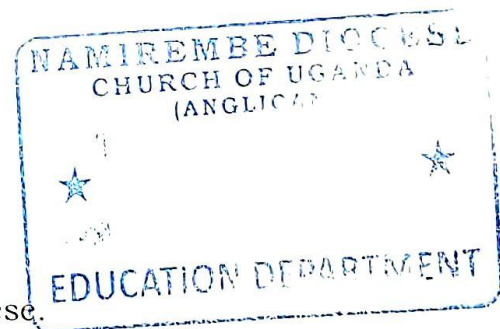 NAMIREMBE DIOCESE
CHURCH OF UGANDA
(ANGLICAN
EDUCATION DEPARTMENT